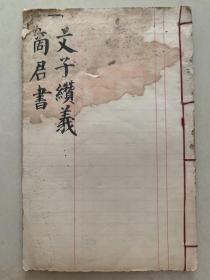 文子纉義
商君書